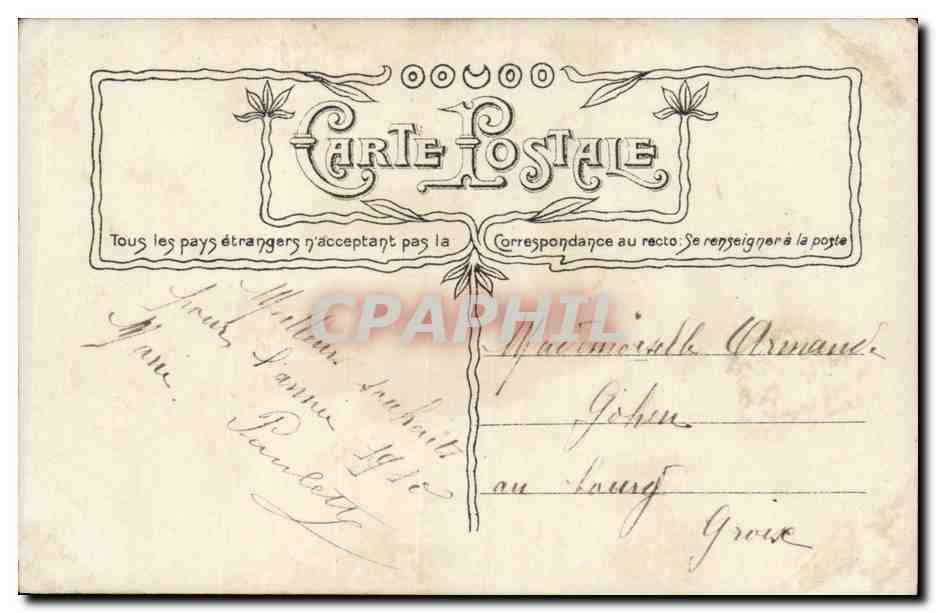 CARTE POSTALE
Tous les pays étrangers n'acceptant pas la Correspondance au recto: Se renseigner à la poste
CPAPHIL
Meilleurs souhaits
pour l'année 1910
Marie. Paulette
Mademoiselle Armande
Gohen
au bourg
Groix